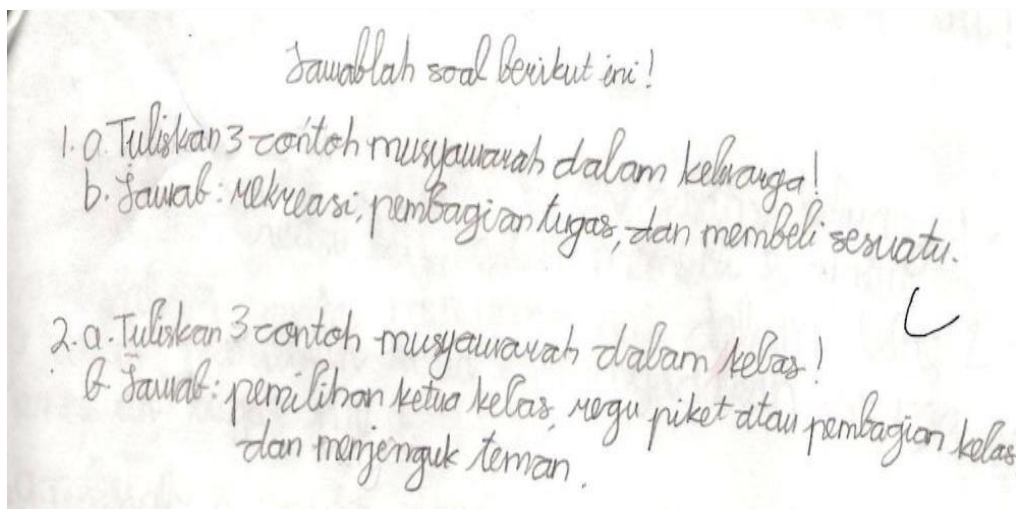 Jawablah soal berikut ini!
1. a. Tuliskan 3 contoh musyawarah dalam keluarga!
b. Jawab: rekreasi, pembagian tugas, dan membeli sesuatu.
2. a. Tuliskan 3 contoh musyawarah dalam kelas!
b. Jawab: pemilihan ketua kelas, regu piket atau pembagian kelas
dan menjenguk teman.